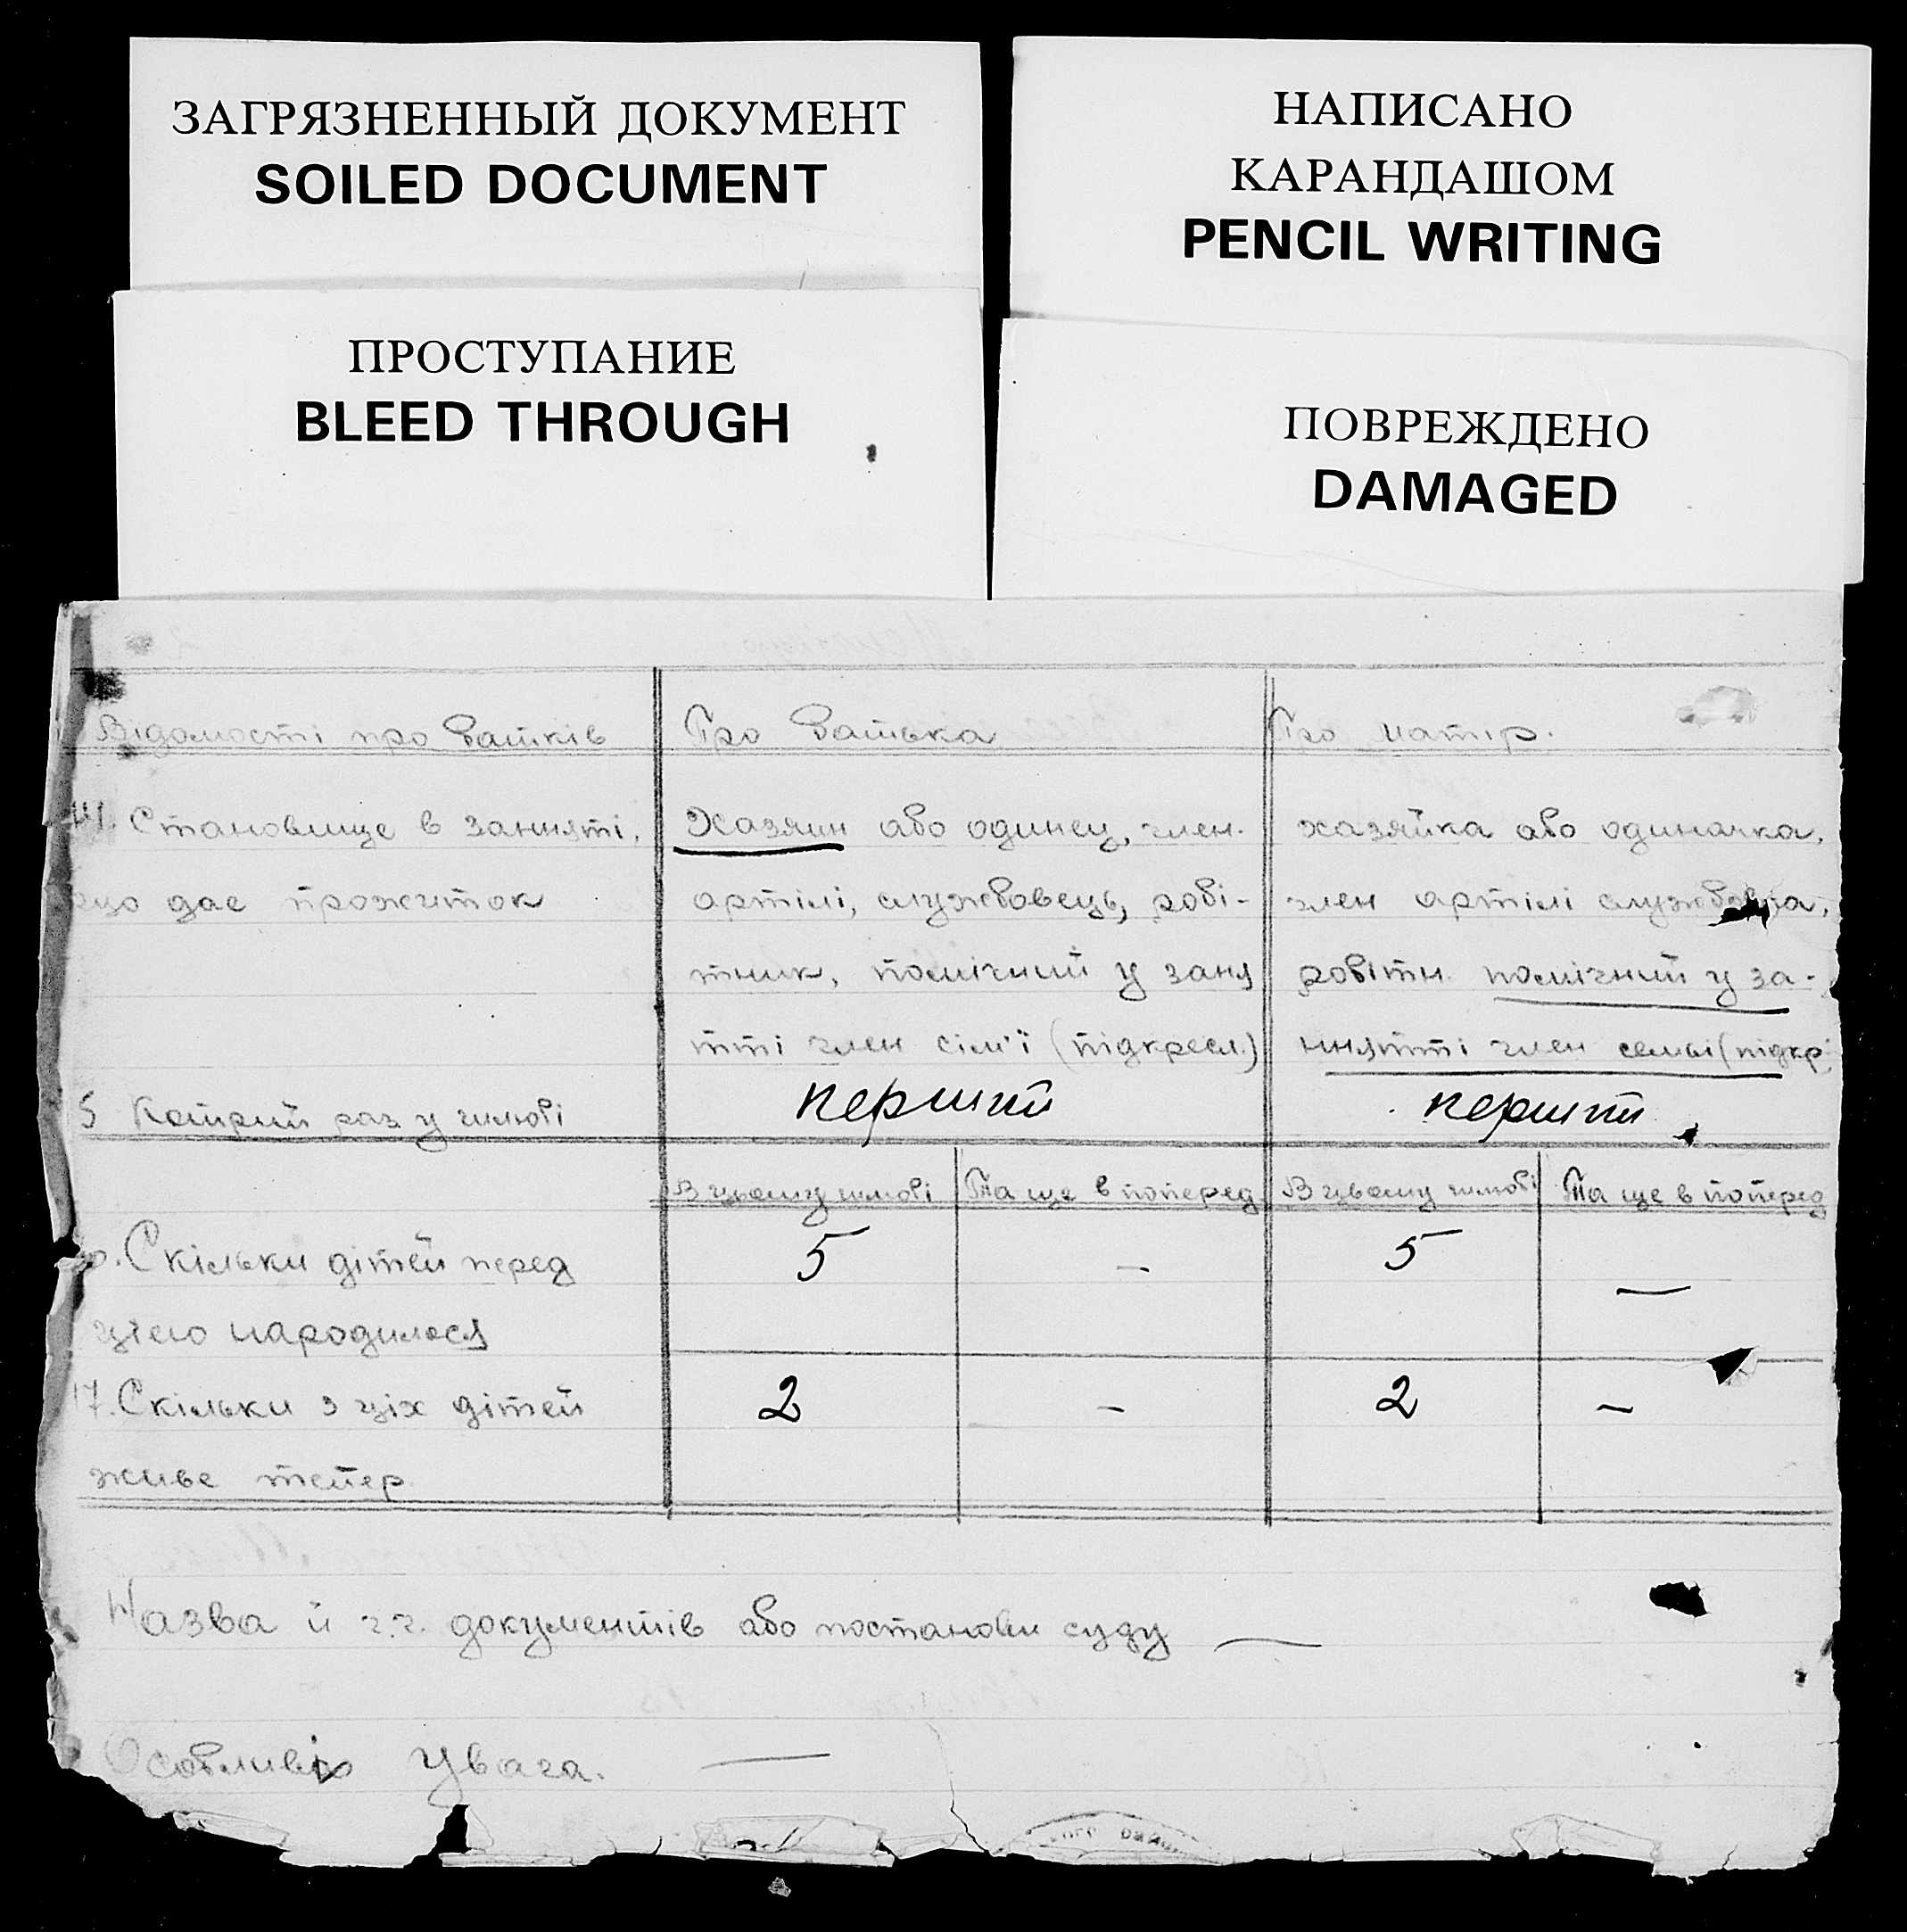 ЗАГРЯЗНЕННЫЙ ДОКУМЕНТ
SOILED DOCUMENT
НАПИСАНО
КАРАНДАШОМ
PENCIL WRITING
ПРОСТУПАНИЕ
BLEED THROUGH
ПОВРЕЖДЕНО
DAMAGED
Відомості про батків
Про батька
Про матір.
14. Становище в занняті,
що дає прожиток
Хазяин або одинец, член.
артілі, службовець, робі-
тник, помічний у заня
тті член сімʼї (підкресл.)
хазяйка або одиначка,
член артілі службовка,
робітн. помічний у за-
ннятті член семьі (підкр.
5 Котрий раз у шлюбі
перший
перший
В цьому шлюбі
Та ще в поперед.
В цьому шлюбі
Та ще в поперед
Скільки дітей перед
цією народилося
5
-
5
—
17. Скільки з ціх дітей
живе тепер.
2
-
2
-
Назва й ч.ч. документів або постанови суду —
Особливі увага. —